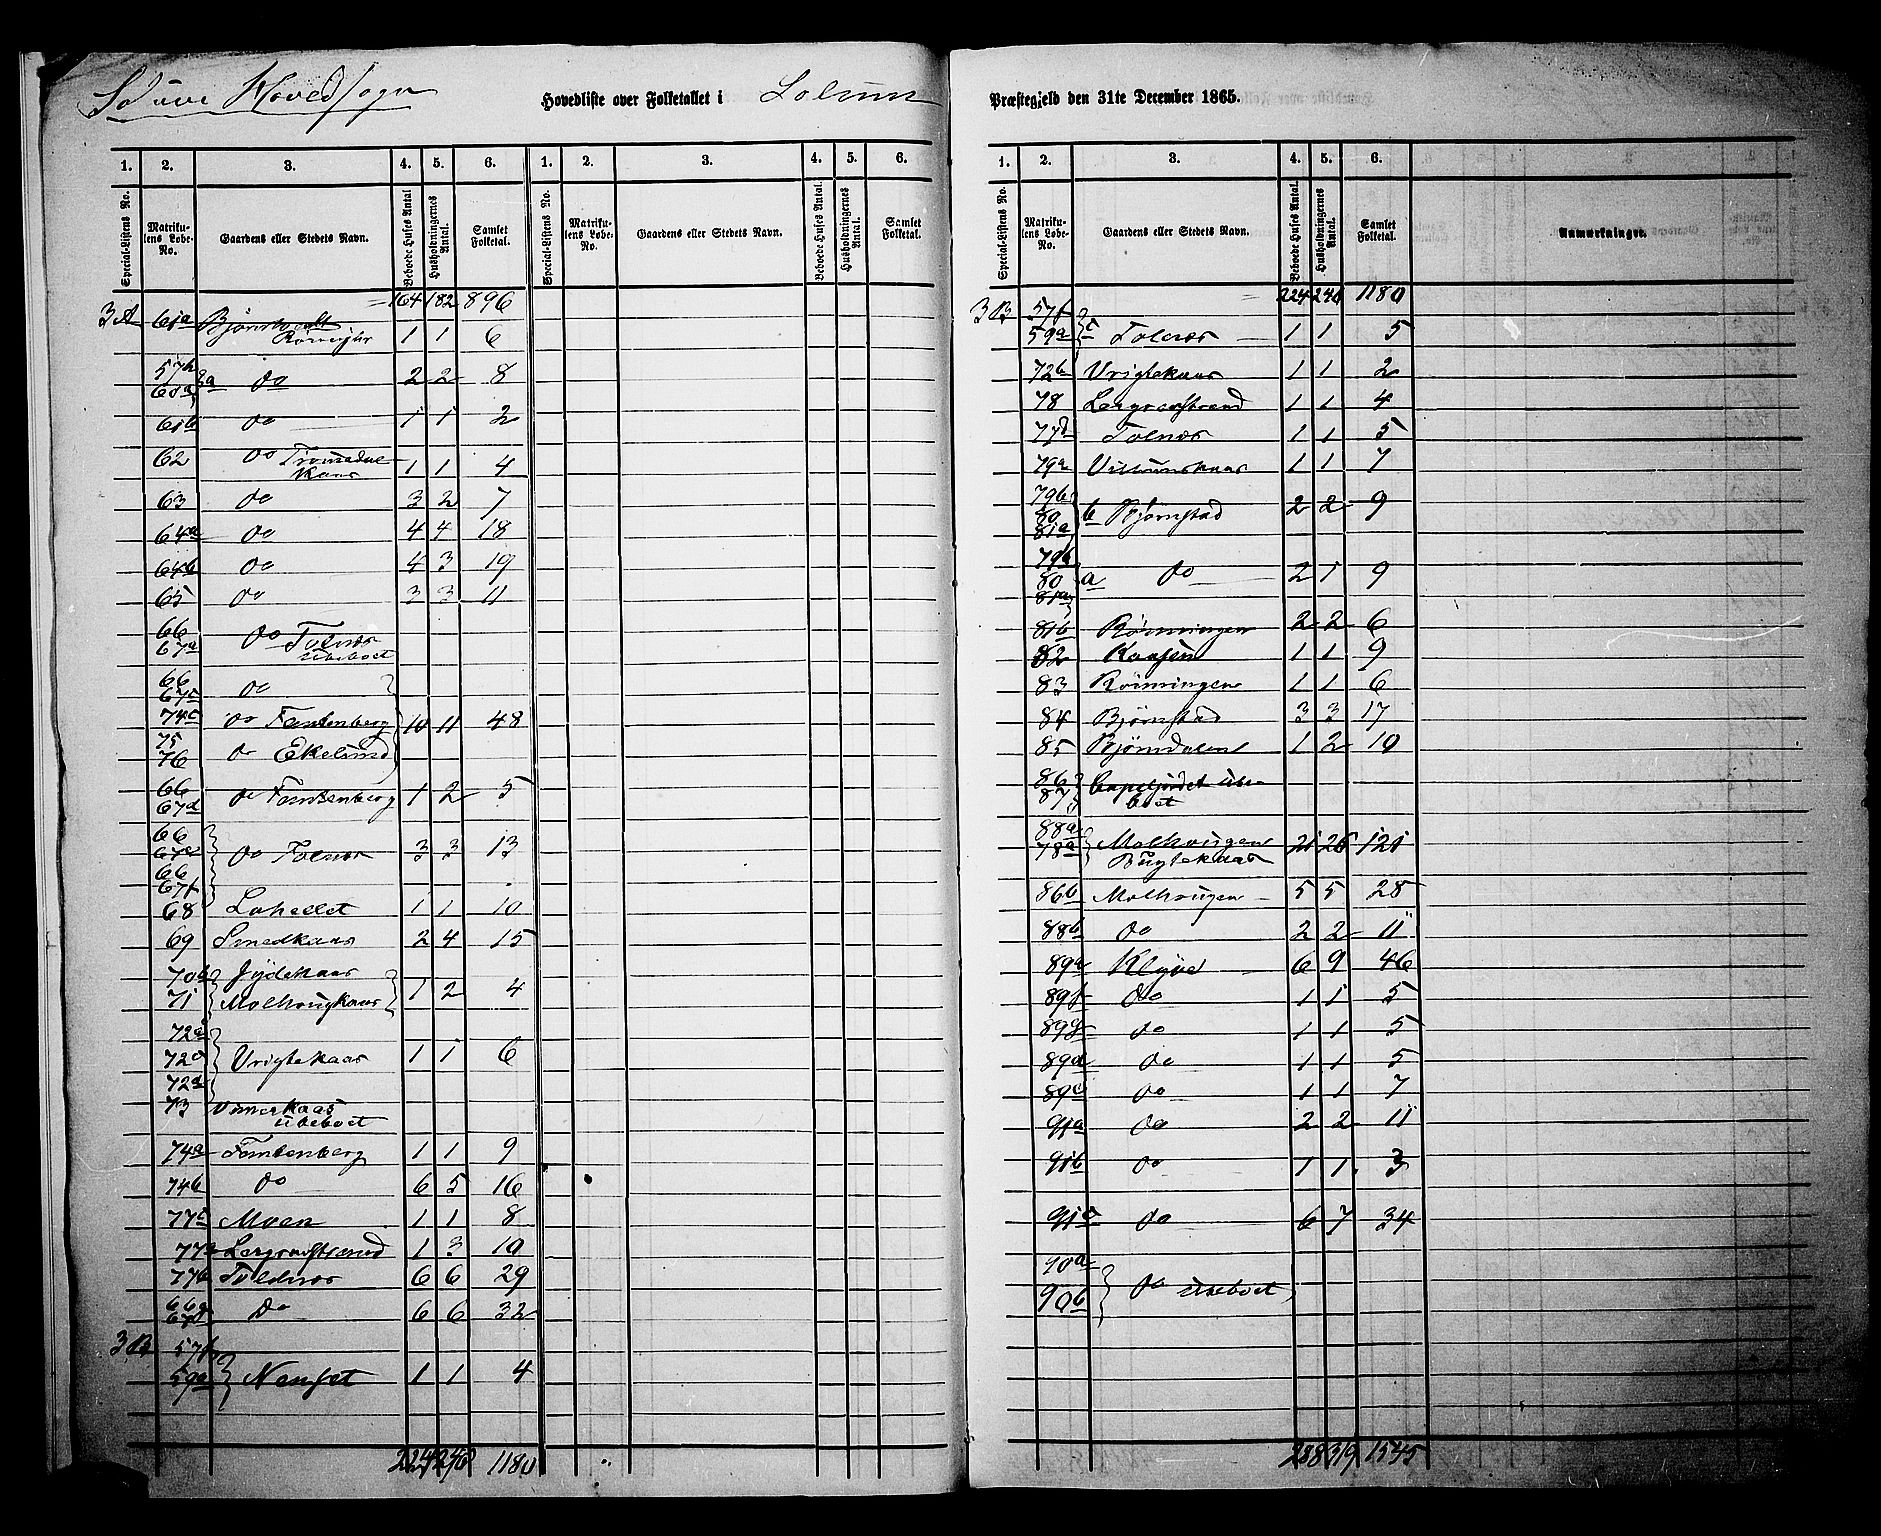 Solum Hovedsogn
Hovedliste over Folketallet i Solum Præstegjeld den 31te December 1865.
1. 2. 3. 4. 5. 6. 1. 2. 3. 4. 5. 6.
Special-Listens No. Matrikulens Løbe-No. Gaardens eller Stedets Navn. Beboede Huses Antal Husholdningernes Antal. Samlet Folketal. Special-Listens No. Matrikulens Løbe-No. Gaardens eller Stedets Navn. Beboede Huses Antal. Husholdningernes Antal. Samlet Folketal.
= 164 182 896
3A 61a
Rörvigtr 1 1 6
57b
61a } a do 2 2 8
61b do 1 1 2
62 do Tromsdal-
kaas 1 1 4
63 do 3 2 7
64a do 4 4 18
64b do 4 3 19
65 do 3 3 11
66
67a do Tolnæs
ubeboet
66
67c do
74c do Fantenberg 10 11 48
75
76 do Ekelund
66
67d do Fantenberg 1 2 5
66
67e do Tolnæs 3 3 13
66
67f
68 Lahellet 1 1 10
69 Smedkaas 2 4 15
70b Jydekaas
71 Molhougkaas 1 2 4
72a
72c Vrigtekaas 1 1 6
72d
73 Vimerkaas
ubeboet
74a Fantenberg 1 1 9
74b do 6 5 16
77c Moen 1 1 8
77a Lergravstrand 1 3 10
77b Toldnæs 6 6 29
66g
67g Do 6 6 32
3B 57f
59a } Nenset 1 1 4
224 246 1180
1. 2. 3. 4. 5. 6.
Special-Listens No. Matrikulens Løbe-No. Gaardens eller Stedets Navn. Beboede Huses Antal. Husholdningernes Antal. Samlet Folketal. Anmærkninger.
= 224 246 1180
3B 57f
59a } c Tolnæs 1 1 5
72b Vrigtekaas 1 1 2
78 Lergravstrand 1 1 4
77d Tolnæs 1 1 5
79a Villumskaas 1 1 7
79b
80 b Bjørnstad 2 2 9
81a
79b
80 a do 2 1 9
81a
81b Rönningen 2 2 6
82 Kaasen 1 1 9
83 Rönningen 1 1 6
84 Bjørnstad 3 3 17
85 Bjørndalen 1 2 10
86
87 } Capeljordet ube-
boet
88a
78a } Molhougen 21 26 121
Bugtekaas
86b Molhougen 5 5 28
88b do 2 2 11
89a Klyve 6 9 46
89f do 1 1 5
89g do 1 1 5
89d do 1 1 5
89c do 1 1 7
91a do 2 2 11
91b do 1 1 3
91c do 6 7 34
90a
90b } do ubeboet
288 319 1545